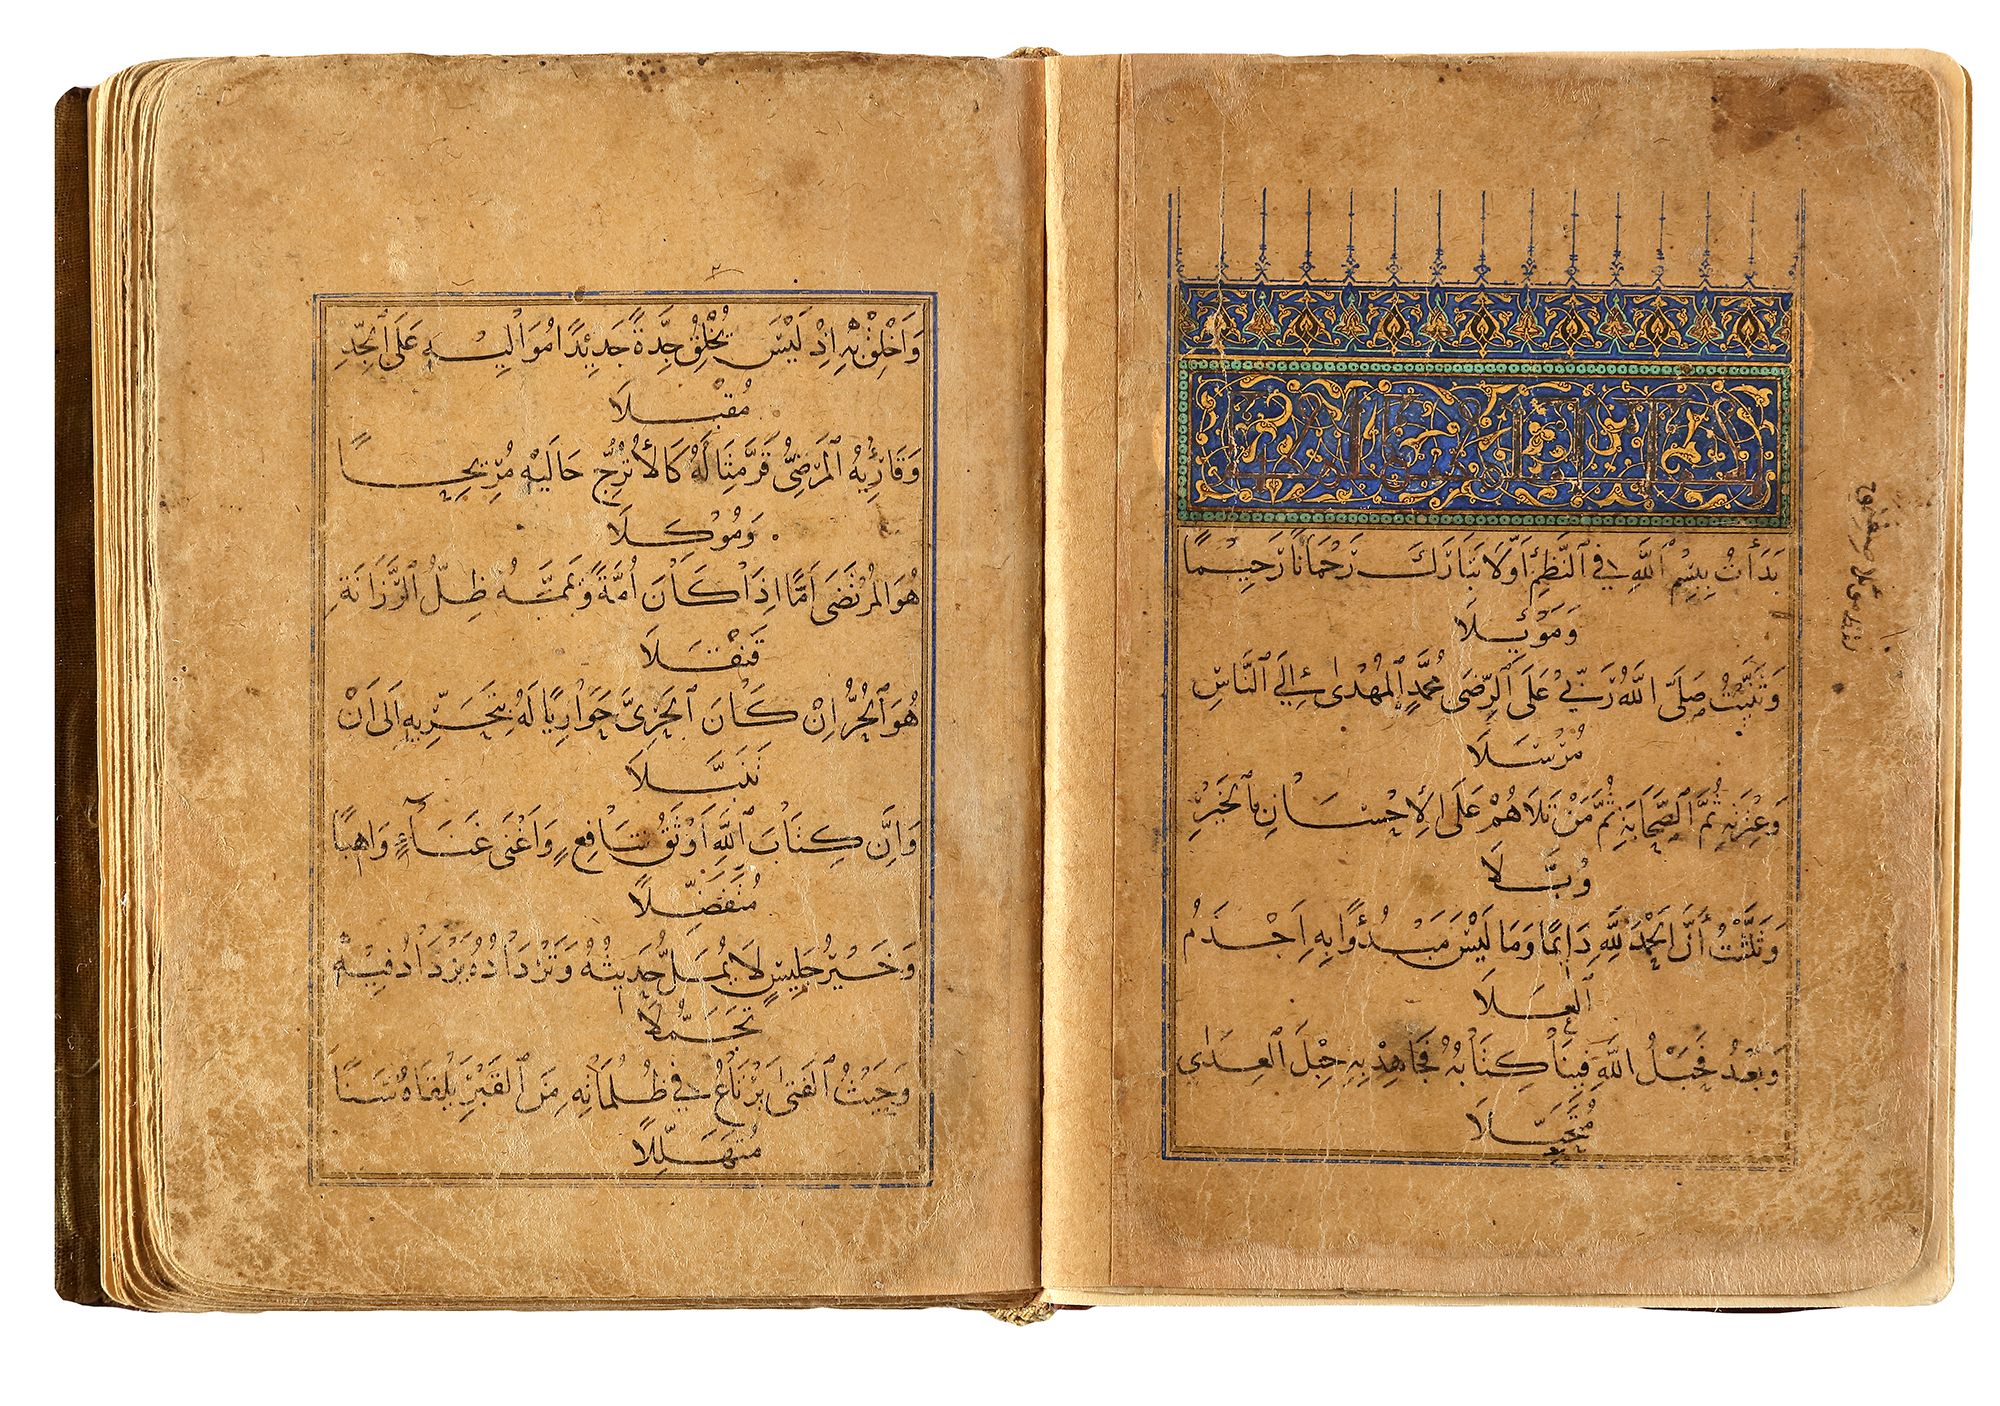 بَدَأْتُ بِبِسْمِ ٱللَّهِ فِي ٱلنَّظْمِ أَوَّلَا تَبَارَكَ رَحْمَانًا رَحِيْمًا
وَمَوْئِلَا
وَثَنَّيْتُ صَلَّى ٱللَّهُ رَبِّيْ عَلَى ٱلرِّضَى مُحَمَّدٍ ٱلْمُهْدَىٰ إِلَى ٱلنَّاسِ
مُرْسَلَا
وَعِتْرَتِهِ ثُمَّ ٱلصَّحَابَةِ ثُمَّ مَنْ تَلَاهُمْ عَلَى ٱلْإِحْسَانِ بِٱلْخَيْرِ
وُبَّلَا
وَثَلَّثْتُ أَنَّ ٱلْحَمْدَ لِلَّهِ دَايِمًا وَمَا لَيْسَ مَبْدُوءًا بِهِ أَجْذَمُ
ٱلْعَلَا
وَبَعْدُ فَحَبْلُ ٱللَّهِ فِيْنَا كِتَابُهُ فَجَاهِدْ بِهِ حِبْلَ ٱلْعِدَىٰ
مُتَحَبِّلَا
وَأَخْلِقْ بِهِ إِذْ لَيْسَ يُخْلِقُ جِدَّةً جَدِيْدًا مُوَالِيْهِ عَلَى ٱلْجِدِّ
مُقْبِلَا
وَقَارِئُهُ ٱلْمَرْضِيُّ قَرَّ مِثَالُهُ كَٱلْأُتْرُجِّ حَالَيْهِ مُرِيْحًا
وَمُوْكَلَا
هُوَ ٱلْمُرْتَضَى أَمًّا إِذَا كَانَ أُمَّةً وَيَمَّمَهُ ظِلُّ ٱلرَّزَانَةِ
قَنْقَلَا
هُوَ ٱلْحُرُّ إِنْ كَانَ ٱلْحَرِيَّ حَوَارِيًا لَهُ بِتَحَرِّيهِ إِلَى أَنْ
تَنَبَّلَا
وَإِنَّ كِتَابَ ٱللَّهِ أَوْثَقُ شَافِعٍ وَأَغْنَى غَنَاءٍ وَاهِبًا
مُتَفَضِّلًا
وَخَيْرُ جَلِيْسٍ لَا يُمَلُّ حَدِيثُهُ وَتَرْدَادُهُ يَزْدَادُ فِيْهِ
تَجَمُّلَا
وَحَيْثُ ٱلْفَتَىٰ يَرْتَاعُ فِي ظُلُمَاتِهِ مِنَ ٱلْقَبْرِ يَلْقَاهُ سَنًا
مُتَهَلِّلًا